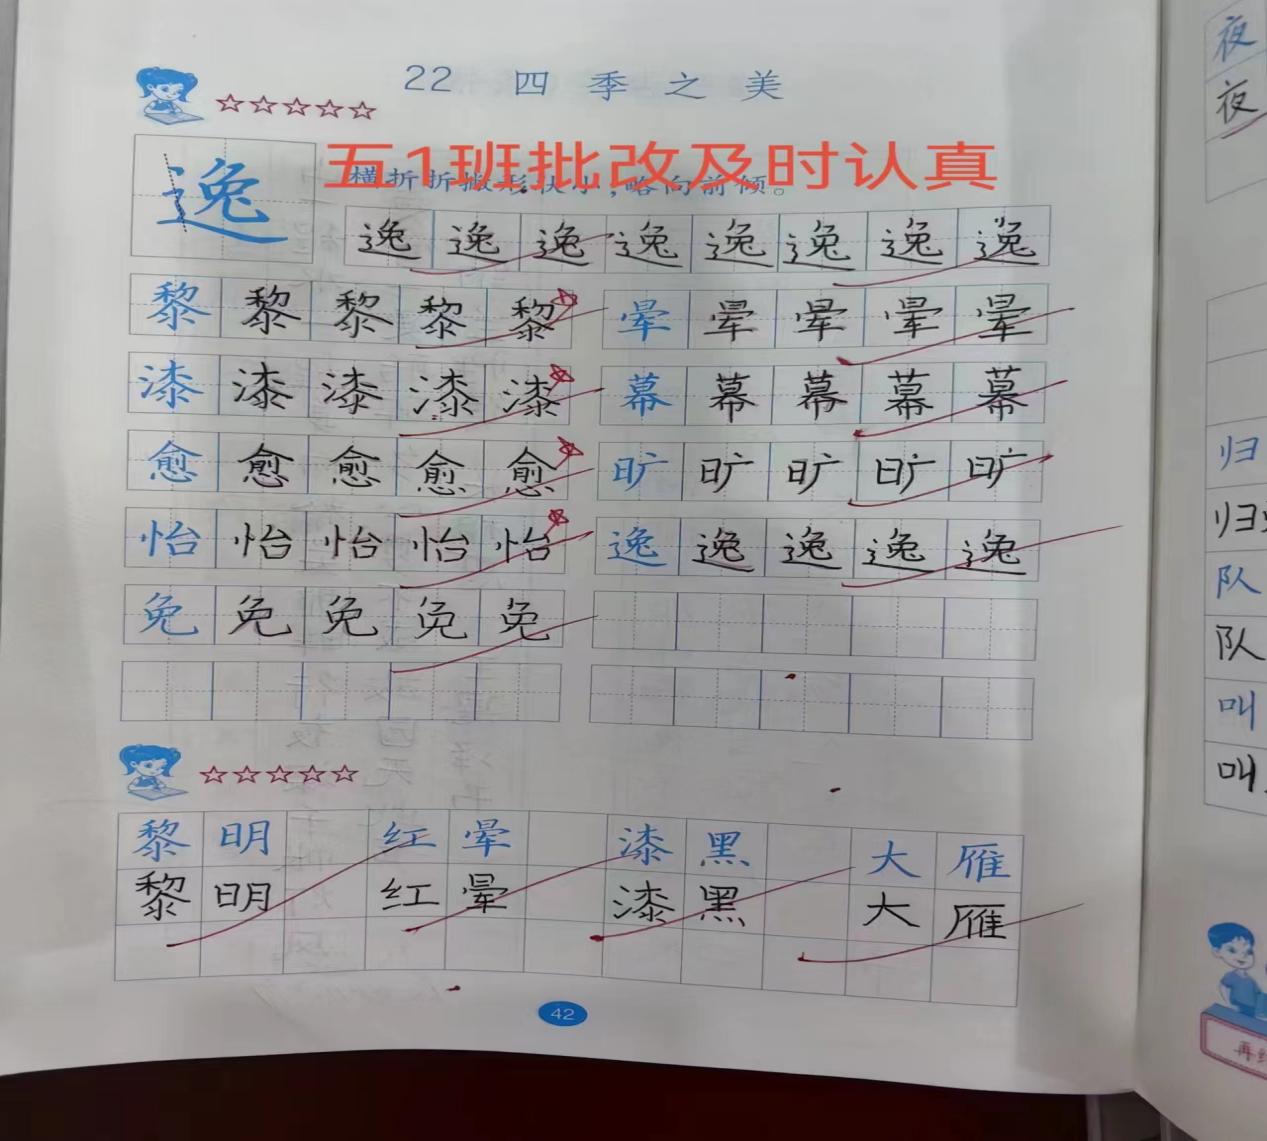 22 四季之美
五1班批改及时认真
横折折撇形状小,略向前倾。
逸
逸 逸 逸 逸 逸 逸 逸 逸
黎 黎 黎 黎 黎 晕 晕 晕 晕 晕
漆 漆 漆 漆 漆 幕 幕 幕 幕 幕
愈 愈 愈 愈 愈 旷 旷 旷 旷 旷
怡 怡 怡 怡 怡 逸 逸 逸 逸 逸
免 免 免 免 免
黎明 红晕 漆黑 大雁
黎明 红晕 漆黑 大雁
42
夜
夜
归
归
队
队
叫
叫